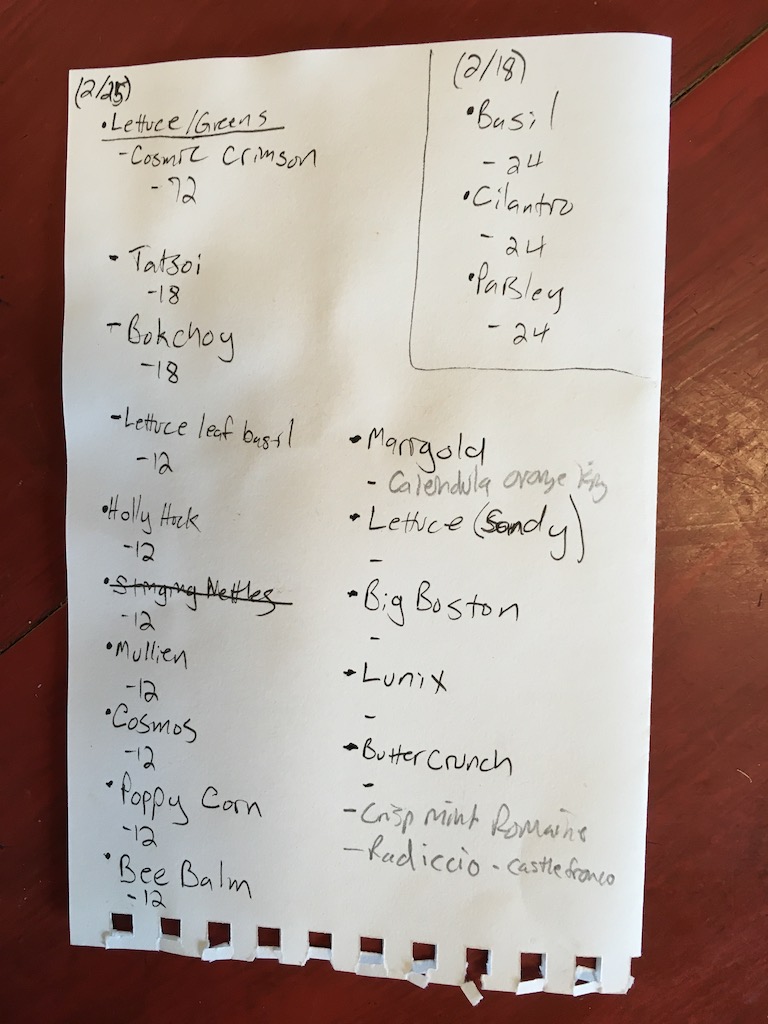 (2/25)
•Lettuce/Greens
-Cosmic Crimson
-72
• Tatsoi
-18
- Bokchoy
-18
-Lettuce leaf basil
-12
•Holly Hock
-12
•Stinging Nettles
-12
•Mullien
-12
•Cosmos
-12
•Poppy Corn
-12
•Bee Balm
-12
(2/18)
•Basil
- 24
•Cilantro
- 24
•Parsley
- 24
•Marigold
- Calendula orange
•Lettuce (Sandy)
-
•Big Boston
-
•Lunix
-
•Butter Crunch
-
-Crisp mint Romaine
-Radiccio - castlefranco